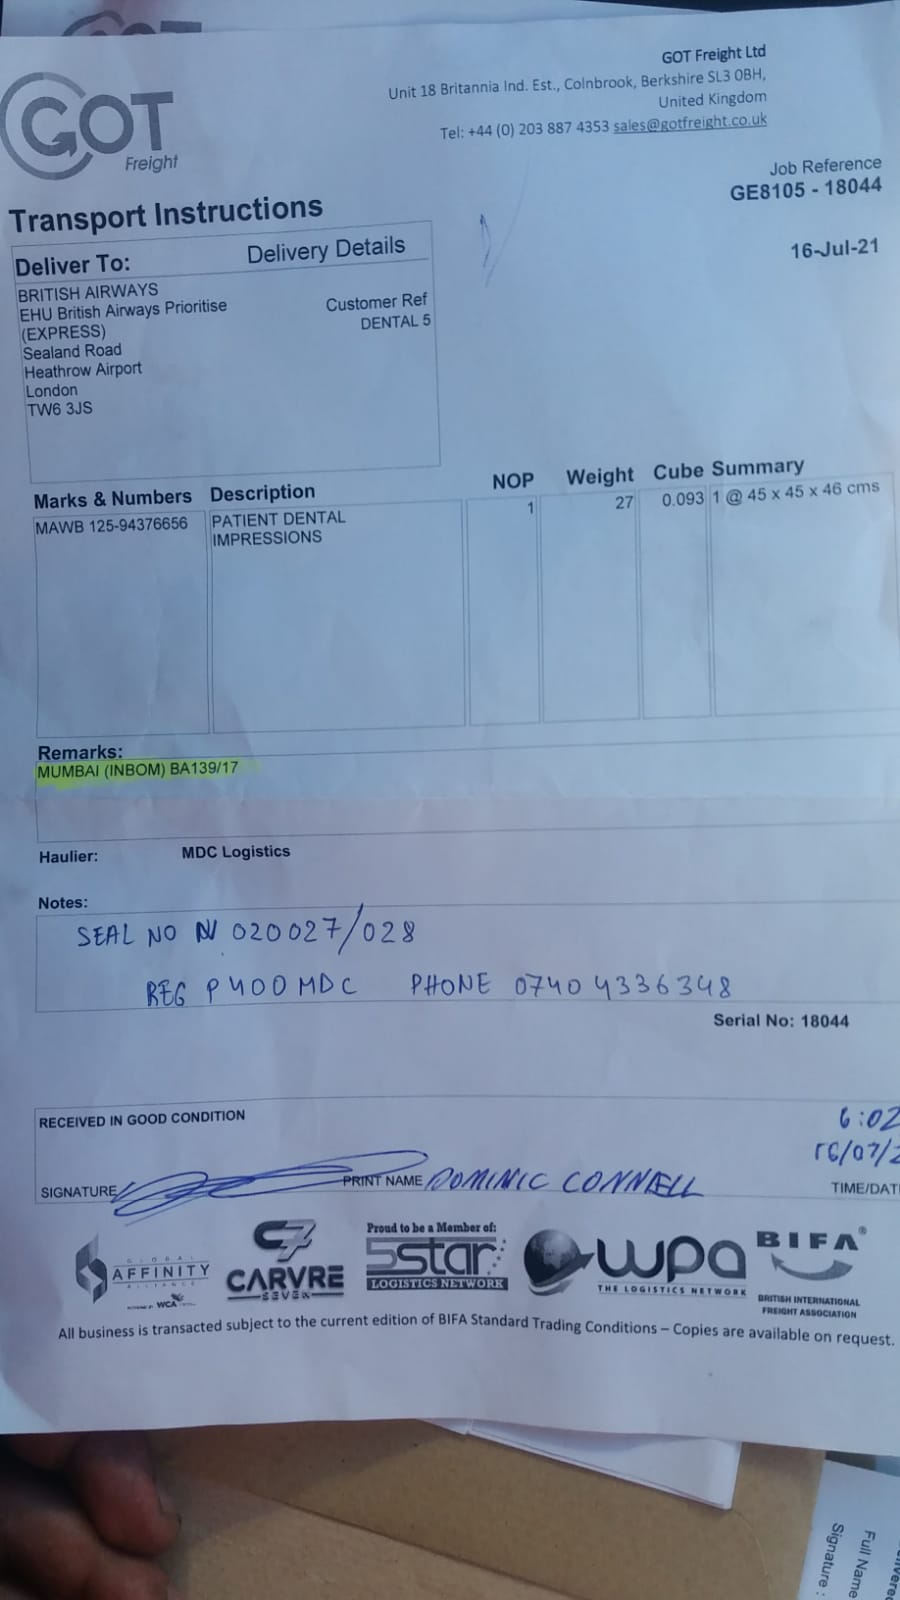 GOT
Freight
GOT Freight Ltd
Unit 18 Britannia Ind. Est., Colnbrook, Berkshire SL3 0BH,
United Kingdom
Tel: +44 (0) 203 887 4353 sales@gotfreight.co.uk
Job Reference
GE8105 - 18044
16-Jul-21
Transport Instructions
Deliver To: Delivery Details
BRITISH AIRWAYS
EHU British Airways Prioritise
(EXPRESS)
Sealand Road
Heathrow Airport
London
TW6 3JS
Customer Ref
DENTAL 5
Marks & Numbers Description NOP Weight Cube Summary
MAWB 125-94376656 PATIENT DENTAL 1 27 0.093 1 @ 45 x 45 x 46 cms
IMPRESSIONS
Remarks:
MUMBAI (INBOM) BA139/17
Haulier: MDC Logistics
Notes:
SEAL NO N 020027/028
REG P400MDC PHONE 0740 4336348
Serial No: 18044
RECEIVED IN GOOD CONDITION
6:02
16/07/2
SIGNATURE PRINT NAME DOMINIC CONNELL TIME/DAT
GLOBAL
AFFINITY
ALLIANCE
WCA
CARVRE
SEVEN
Proud to be a Member of:
5star
LOGISTICS NETWORK
wpa
THE LOGISTICS NETWORK
BIFA®
BRITISH INTERNATIONAL
FREIGHT ASSOCIATION
All business is transacted subject to the current edition of BIFA Standard Trading Conditions – Copies are available on request.
Full Name
Signature :